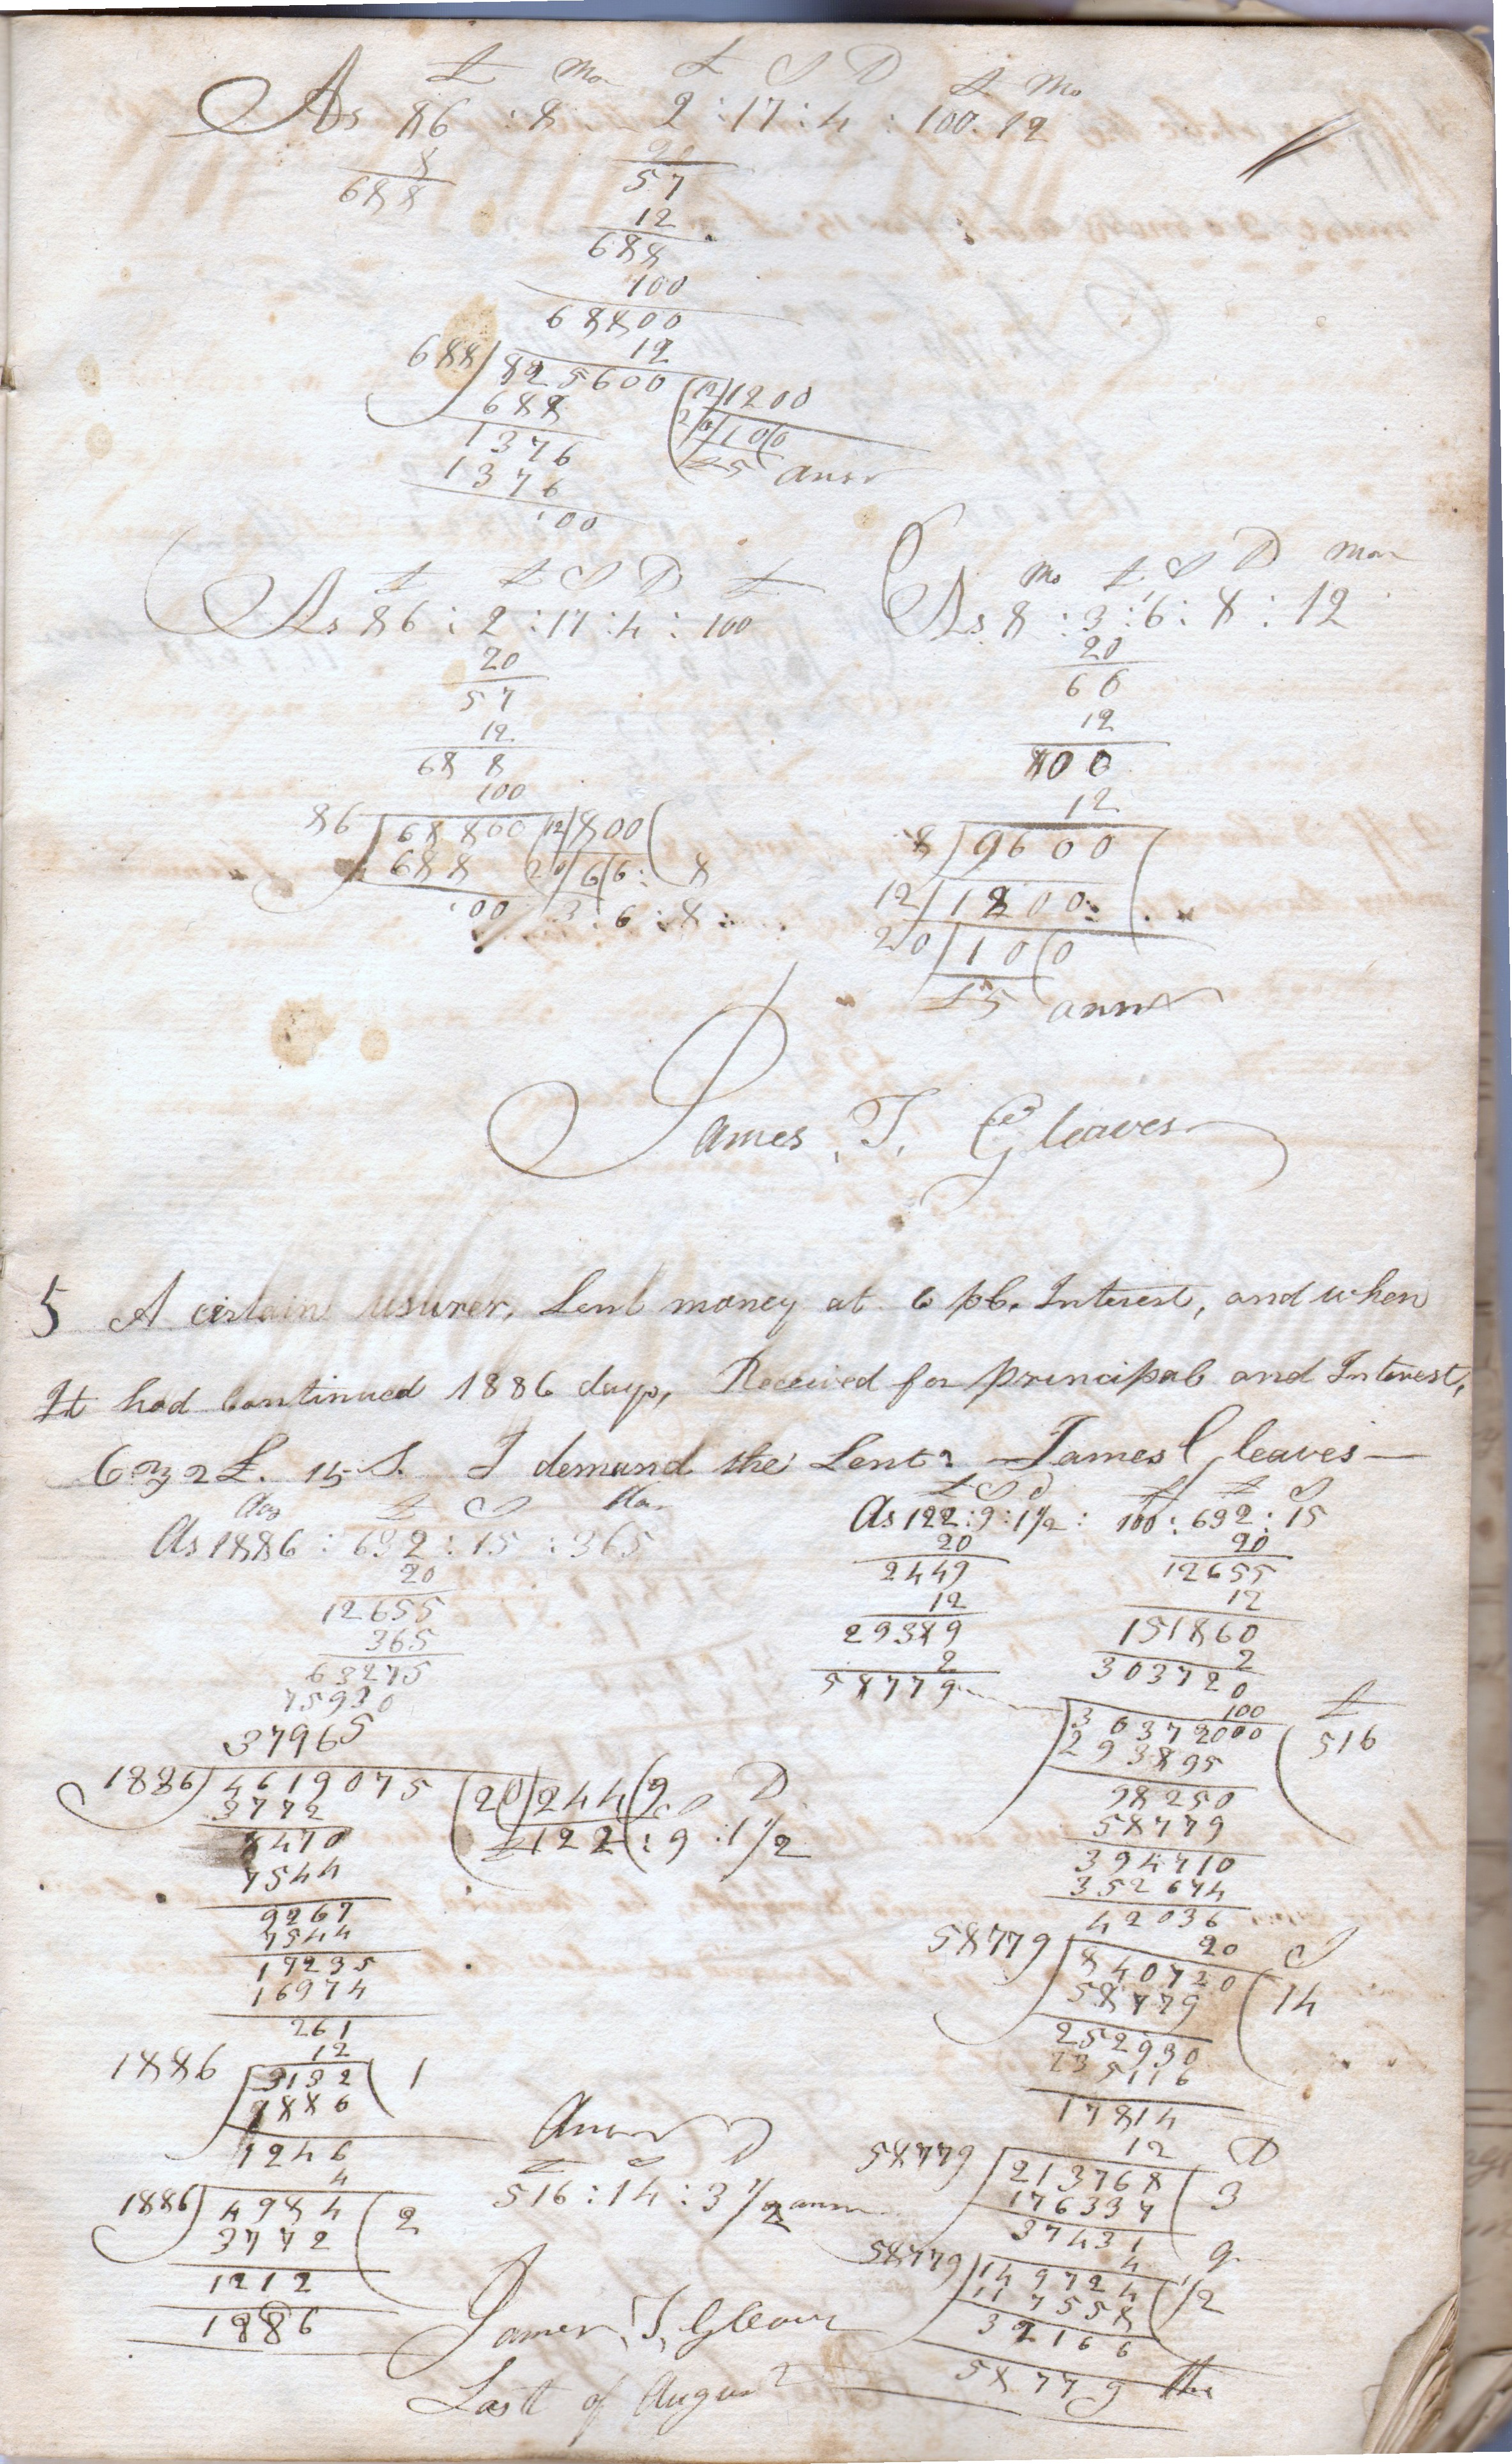 £ Mo £ S D £ Mo
As 86 : 8 2 : 17 : 4 : 100. 12
8 20
688 57
12
688
100
68800
12
688 825600 12 1200
688 20 100
1376 £5 ansr
1376
100
£ £ S D £
As 86 : 2 : 17 : 4 : 100
20
57
12
688
100
86 68800 12 800
688 20 66 : 8
100 3 : 6 : 8
Mo £ S D Mon
As 8 : 3 : 6 : 8 : 12
20
66
12
800
12
8 9600
12 1200
20 100
£5 answ
James. T. Gleaves
5 A certain usurer, Lent money at 6 pC. Interest, and when
It had Continued 1886 days, Received for principal and Interest,
632 £. 15 S. I demand the Lent? James Gleaves
£ S
As 1886 : 632 : 15 : 365
20
12655
365
63275
75930
37965
1886 4619075 20 244(9 S D
3772 £122 : 9 : 1 1/2
8470
7544
9267
7544
17235
16974
261
12
1886 3132 1
1886
1246
4
1886 4984 2
3772
1212
1886
£ S D £ £ S
As 122 : 9 : 1 1/2 : 100 : 632 : 15
20 20
2449 12655
12 12
29389 151860
2 2
58779 303720
100 £
30372000 516
293895
98250
58779
394710
352674
42036
20 S
58779 840720 14
58779
252930
235116
17814
12 D
58779 213768 3
176337
37431
4 q
58779 149724 1/2
117558
32166
58779
Answ
£ S D
516 : 14 : 3 1/2 answ
James. T. Gleaves
Last of August